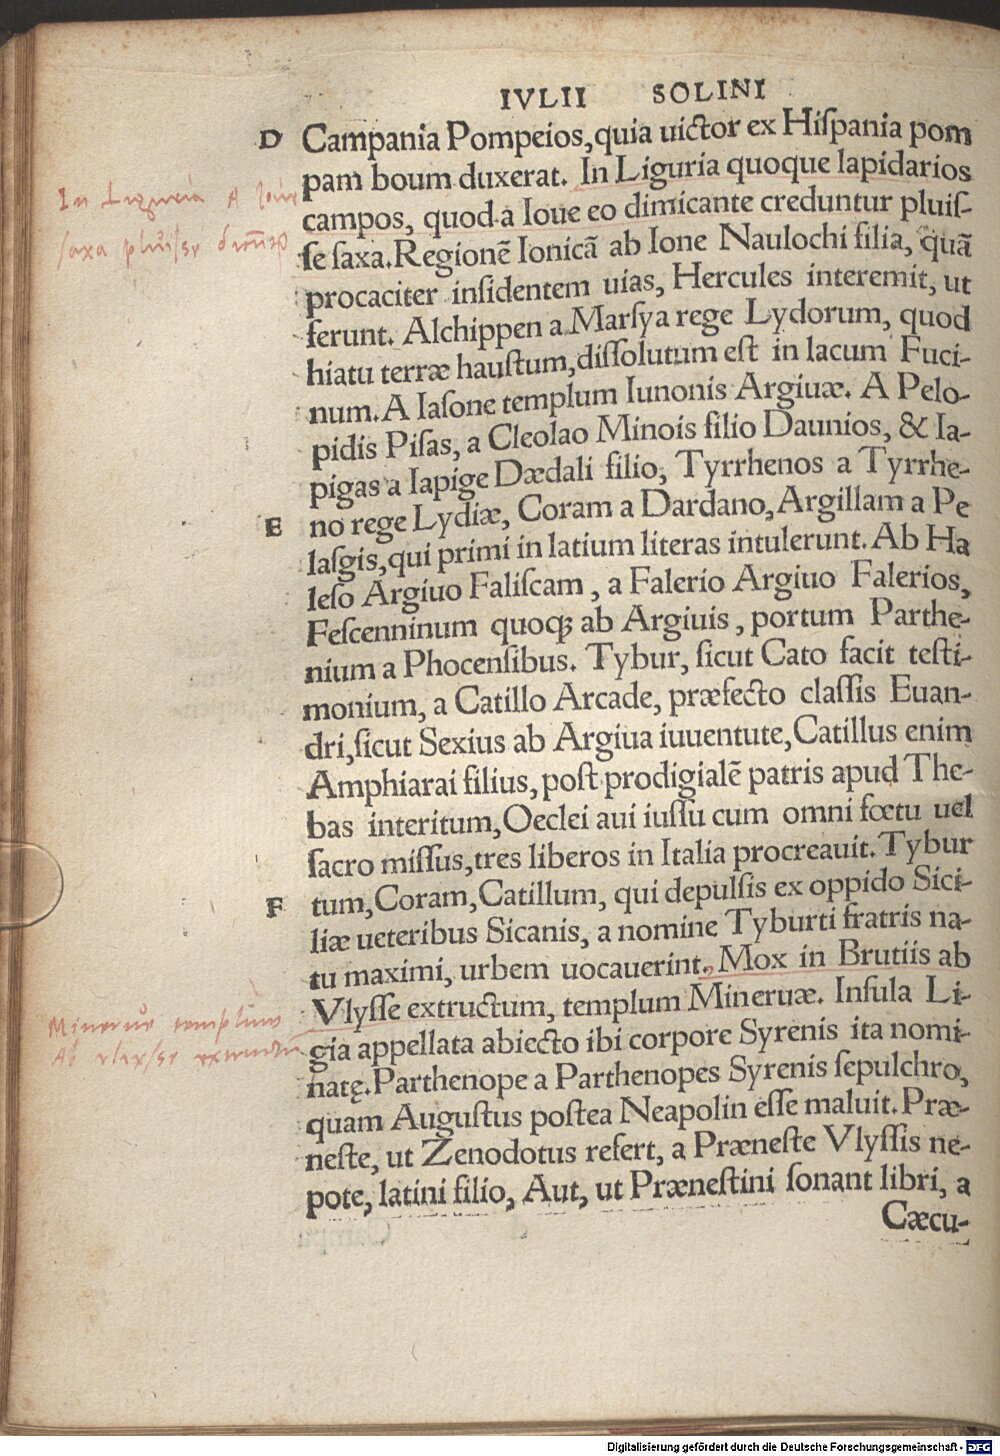 IVLII SOLINI
D Campania Pompeios, quia uictor ex Hiſpania pom
pam boum duxerat. In Liguria quoque lapidarios
campos, quod a Ioue eo dimicante creduntur pluiſ-
ſe ſaxa. Regionē Ionicā ab Ione Naulochi filia, quā
procaciter inſidentem uias, Hercules interemit, ut
ferunt. Alchippen a Marſya rege Lydorum, quod
hiatu terræ hauſtum, diſſolutum eſt in lacum Fuci-
num. A Iaſone templum Iunonis Argiuæ. A Pelo-
pidis Piſas, a Cleolao Minois filio Daunios, & Ia-
pigas a Iapige Dædali filio, Tyrrhenos a Tyrrhe-
E no rege Lydiæ, Coram a Dardano, Argillam a Pe
laſgis, qui primi in latium literas intulerunt. Ab Ha
leſo Argiuo Faliſcam, a Falerio Argiuo Falerios,
Feſcenninum quoqꝫ ab Argiuis, portum Parthe-
nium a Phocenſibus. Tybur, ſicut Cato facit teſti-
monium, a Catillo Arcade, præfecto claſſis Euan-
dri, ſicut Sexius ab Argiua iuuentute, Catillus enim
Amphiarai filius, poſt prodigialē patris apud The-
bas interitum, Oeclei aui iuſſu cum omni fœtu uel
ſacro miſſus, tres liberos in Italia procreauit. Tybur
F tum, Coram, Catillum, qui depulſis ex oppido Sici-
liæ ueteribus Sicanis, a nomine Tyburti fratris na-
tu maximi, urbem uocauerint. Mox in Brutiis ab
Vlyſſe extructum, templum Mineruæ. Inſula Li-
gia appellata abiecto ibi corpore Syrenis ita nomi-
natę. Parthenope a Parthenopes Syrenis ſepulchro,
quam Auguſtus poſtea Neapolin eſſe maluit. Præ-
neſte, ut Zenodotus refert, a Præneſte Vlyſſis ne-
pote, latini filio, Aut, ut Præneſtini ſonant libri, a
Cæcu-
In Liguria A Ioue
ſaxa pluiſse
Mineruę templum
Ab vlyxſse extructum
Digitalisierung gefördert durch die Deutsche Forschungsgemeinschaft - DFG